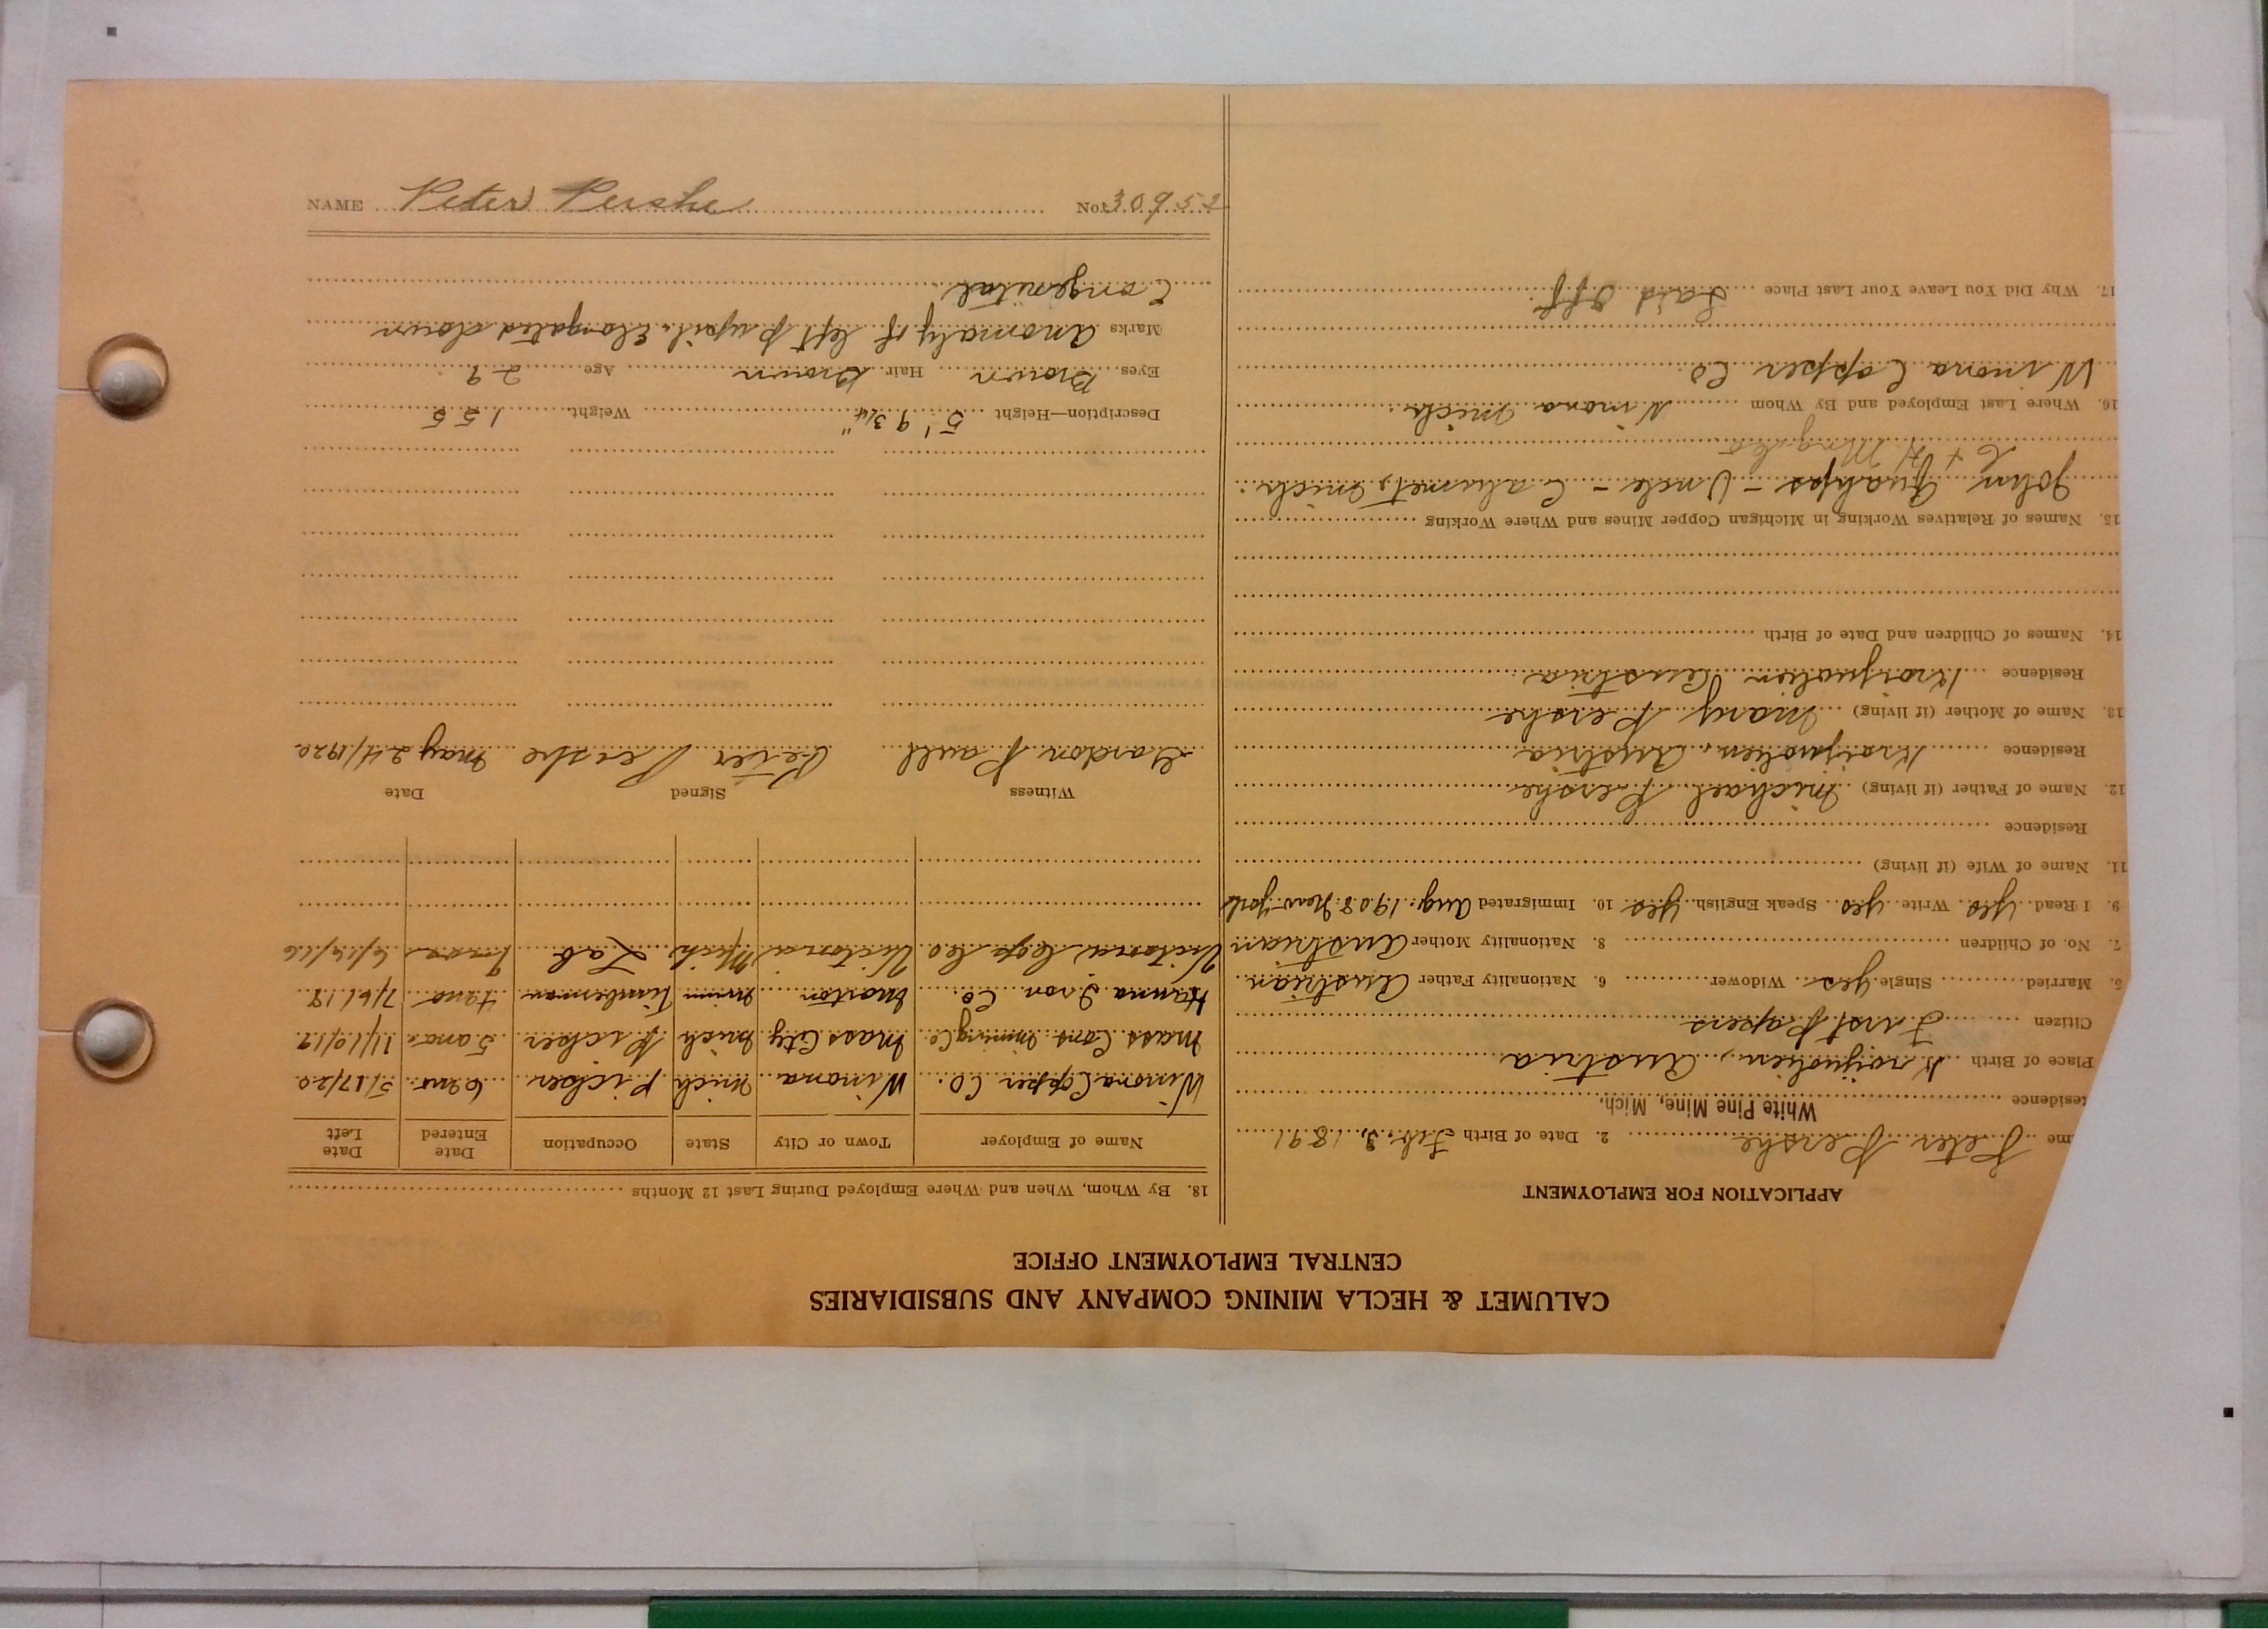 CALUMET & HECLA MINING COMPANY AND SUBSIDIARIES
CENTRAL EMPLOYMENT OFFICE
APPLICATION FOR EMPLOYMENT
me Peter Pershe 2. Date of Birth Feb. 3, 1891
Residence White Pine Mine, Mich.
Place of Birth Austria
Citizen First Papers
5. Married Single yes Widower 6. Nationality Father Austrian
7. No. of Children 8. Nationality Mother Austrian
9. I Read yes Write yes Speak English yes 10. Immigrated Aug. 1908 New York
11. Name of Wife (if living)
Residence
12. Name of Father (if living) Michael Pershe
Residence Austria
13. Name of Mother (if living) Mary Pershe
Residence Austria
14. Names of Children and Date of Birth
15. Names of Relatives Working in Michigan Copper Mines and Where Working
John - Uncle - Calumet, Mich.
C + H Mng Co
16. Where Last Employed and By Whom Winona Mich.
Winona Copper Co
17. Why Did You Leave Your Last Place Laid Off.
18. By Whom, When and Where Employed During Last 12 Months
Name of Employer Town or City State Occupation Date Entered Date Left
Winona Copper Co. Winona Mich Picker 6 mo 5/17/20
Mass Cons. Mining Co. Mass City Mich Picker 5 mos. 11/10/19
Hanna Iron Co. Minn Timberman 18
Victoria Copp Co Victoria Mich Lab 6/15/16
Witness Signed Date
Gordon Paull Peter Pershe May 24/1920
Description—Height 5' 9 3/4" Weight 155
Eyes Brown Hair Brown Age 29
Marks Anomaly of left Pupil. Elongated down
Congenital
NAME Peter Pershe No. 30952